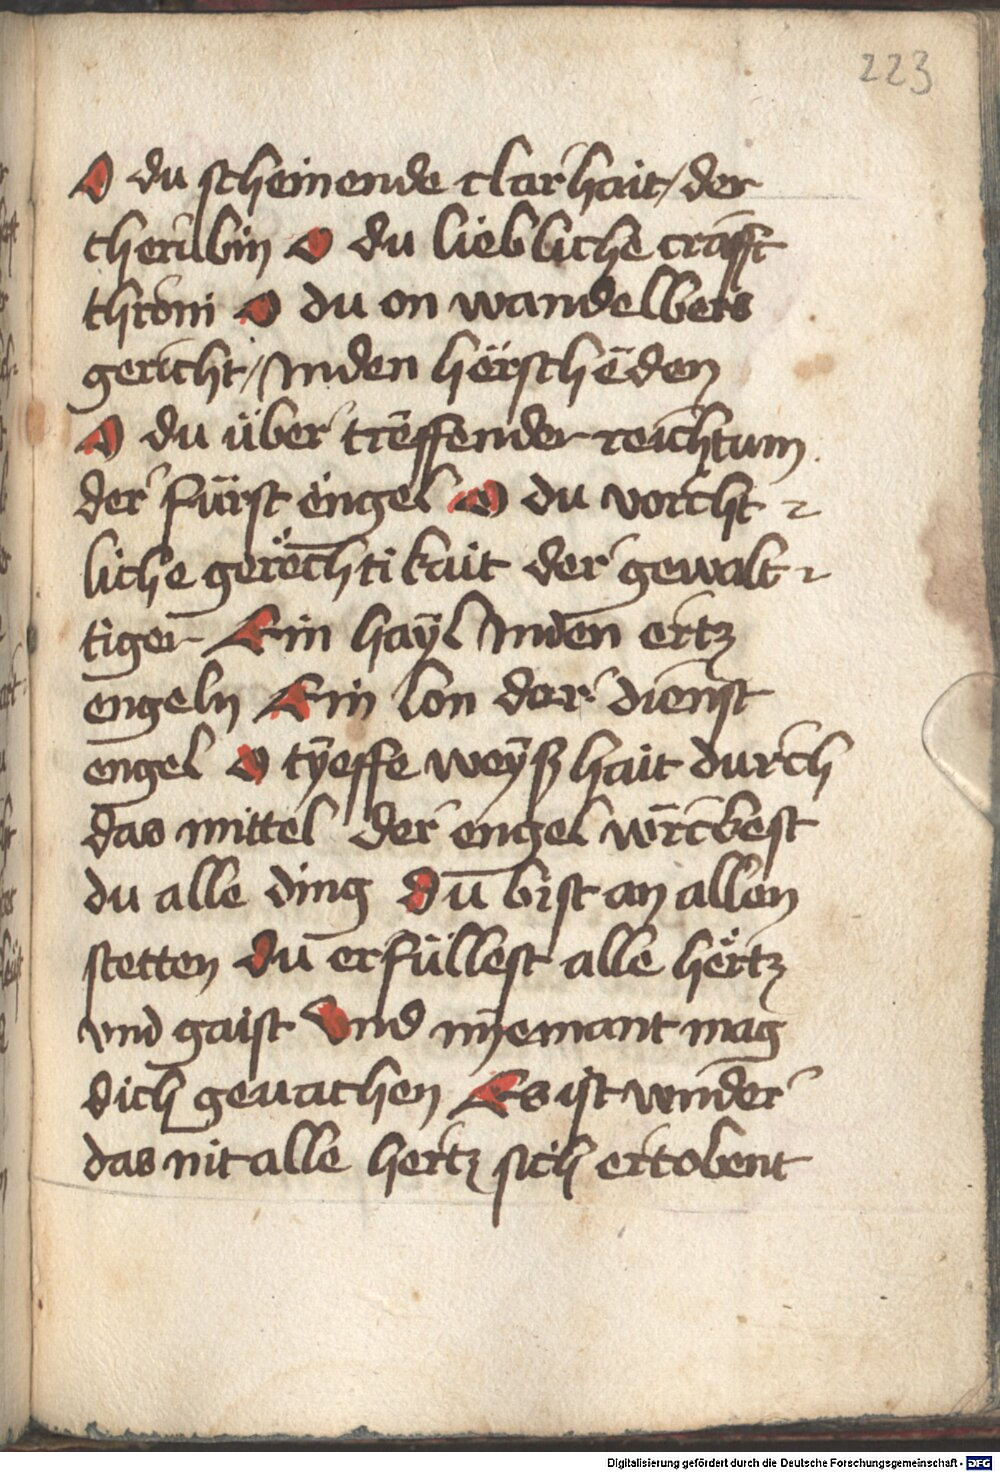 223
O du scheinende clarhait / der
cherubin O du liebliche crafft
throni O du on wandelbers
gericht / Inden hörschēden
O du über trēffender reichtum
der fürst engel O du vorcht-
liche gerechtikait der gewalt-
tiger Ein haÿl Inden ertz
engeln Ein lon der dienst
engel O tÿeffe weÿßhait durch
das mittel der engel würckest
du alle ding Du bist an allen
stetten Du erfüllest alle hertz
vnd gaist Vnd nÿemant mag
dich geuachen Es ist wunder
das nit alle hertz sich ertobent
Digitalisierung gefördert durch die Deutsche Forschungsgemeinschaft - DFG